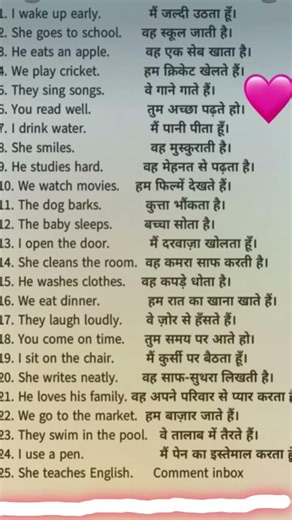 1. I wake up early. मैं जल्दी उठता हूँ।
2. She goes to school. वह स्कूल जाती है।
3. He eats an apple. वह एक सेब खाता है।
4. We play cricket. हम क्रिकेट खेलते हैं।
5. They sing songs. वे गाने गाते हैं।
6. You read well. तुम अच्छा पढ़ते हो।
7. I drink water. मैं पानी पीता हूँ।
8. She smiles. वह मुस्कुराती है।
9. He studies hard. वह मेहनत से पढ़ता है।
10. We watch movies. हम फिल्में देखते हैं।
11. The dog barks. कुत्ता भौंकता है।
12. The baby sleeps. बच्चा सोता है।
13. I open the door. मैं दरवाज़ा खोलता हूँ।
14. She cleans the room. वह कमरा साफ करती है।
15. He washes clothes. वह कपड़े धोता है।
16. We eat dinner. हम रात का खाना खाते हैं।
17. They laugh loudly. वे ज़ोर से हँसते हैं।
18. You come on time. तुम समय पर आते हो।
19. I sit on the chair. मैं कुर्सी पर बैठता हूँ।
20. She writes neatly. वह साफ-सुथरा लिखती है।
21. He loves his family. वह अपने परिवार से प्यार करता
22. We go to the market. हम बाज़ार जाते हैं।
23. They swim in the pool. वे तालाब में तैरते हैं।
24. I use a pen. मैं पेन का इस्तेमाल करता
25. She teaches English. Comment inbox